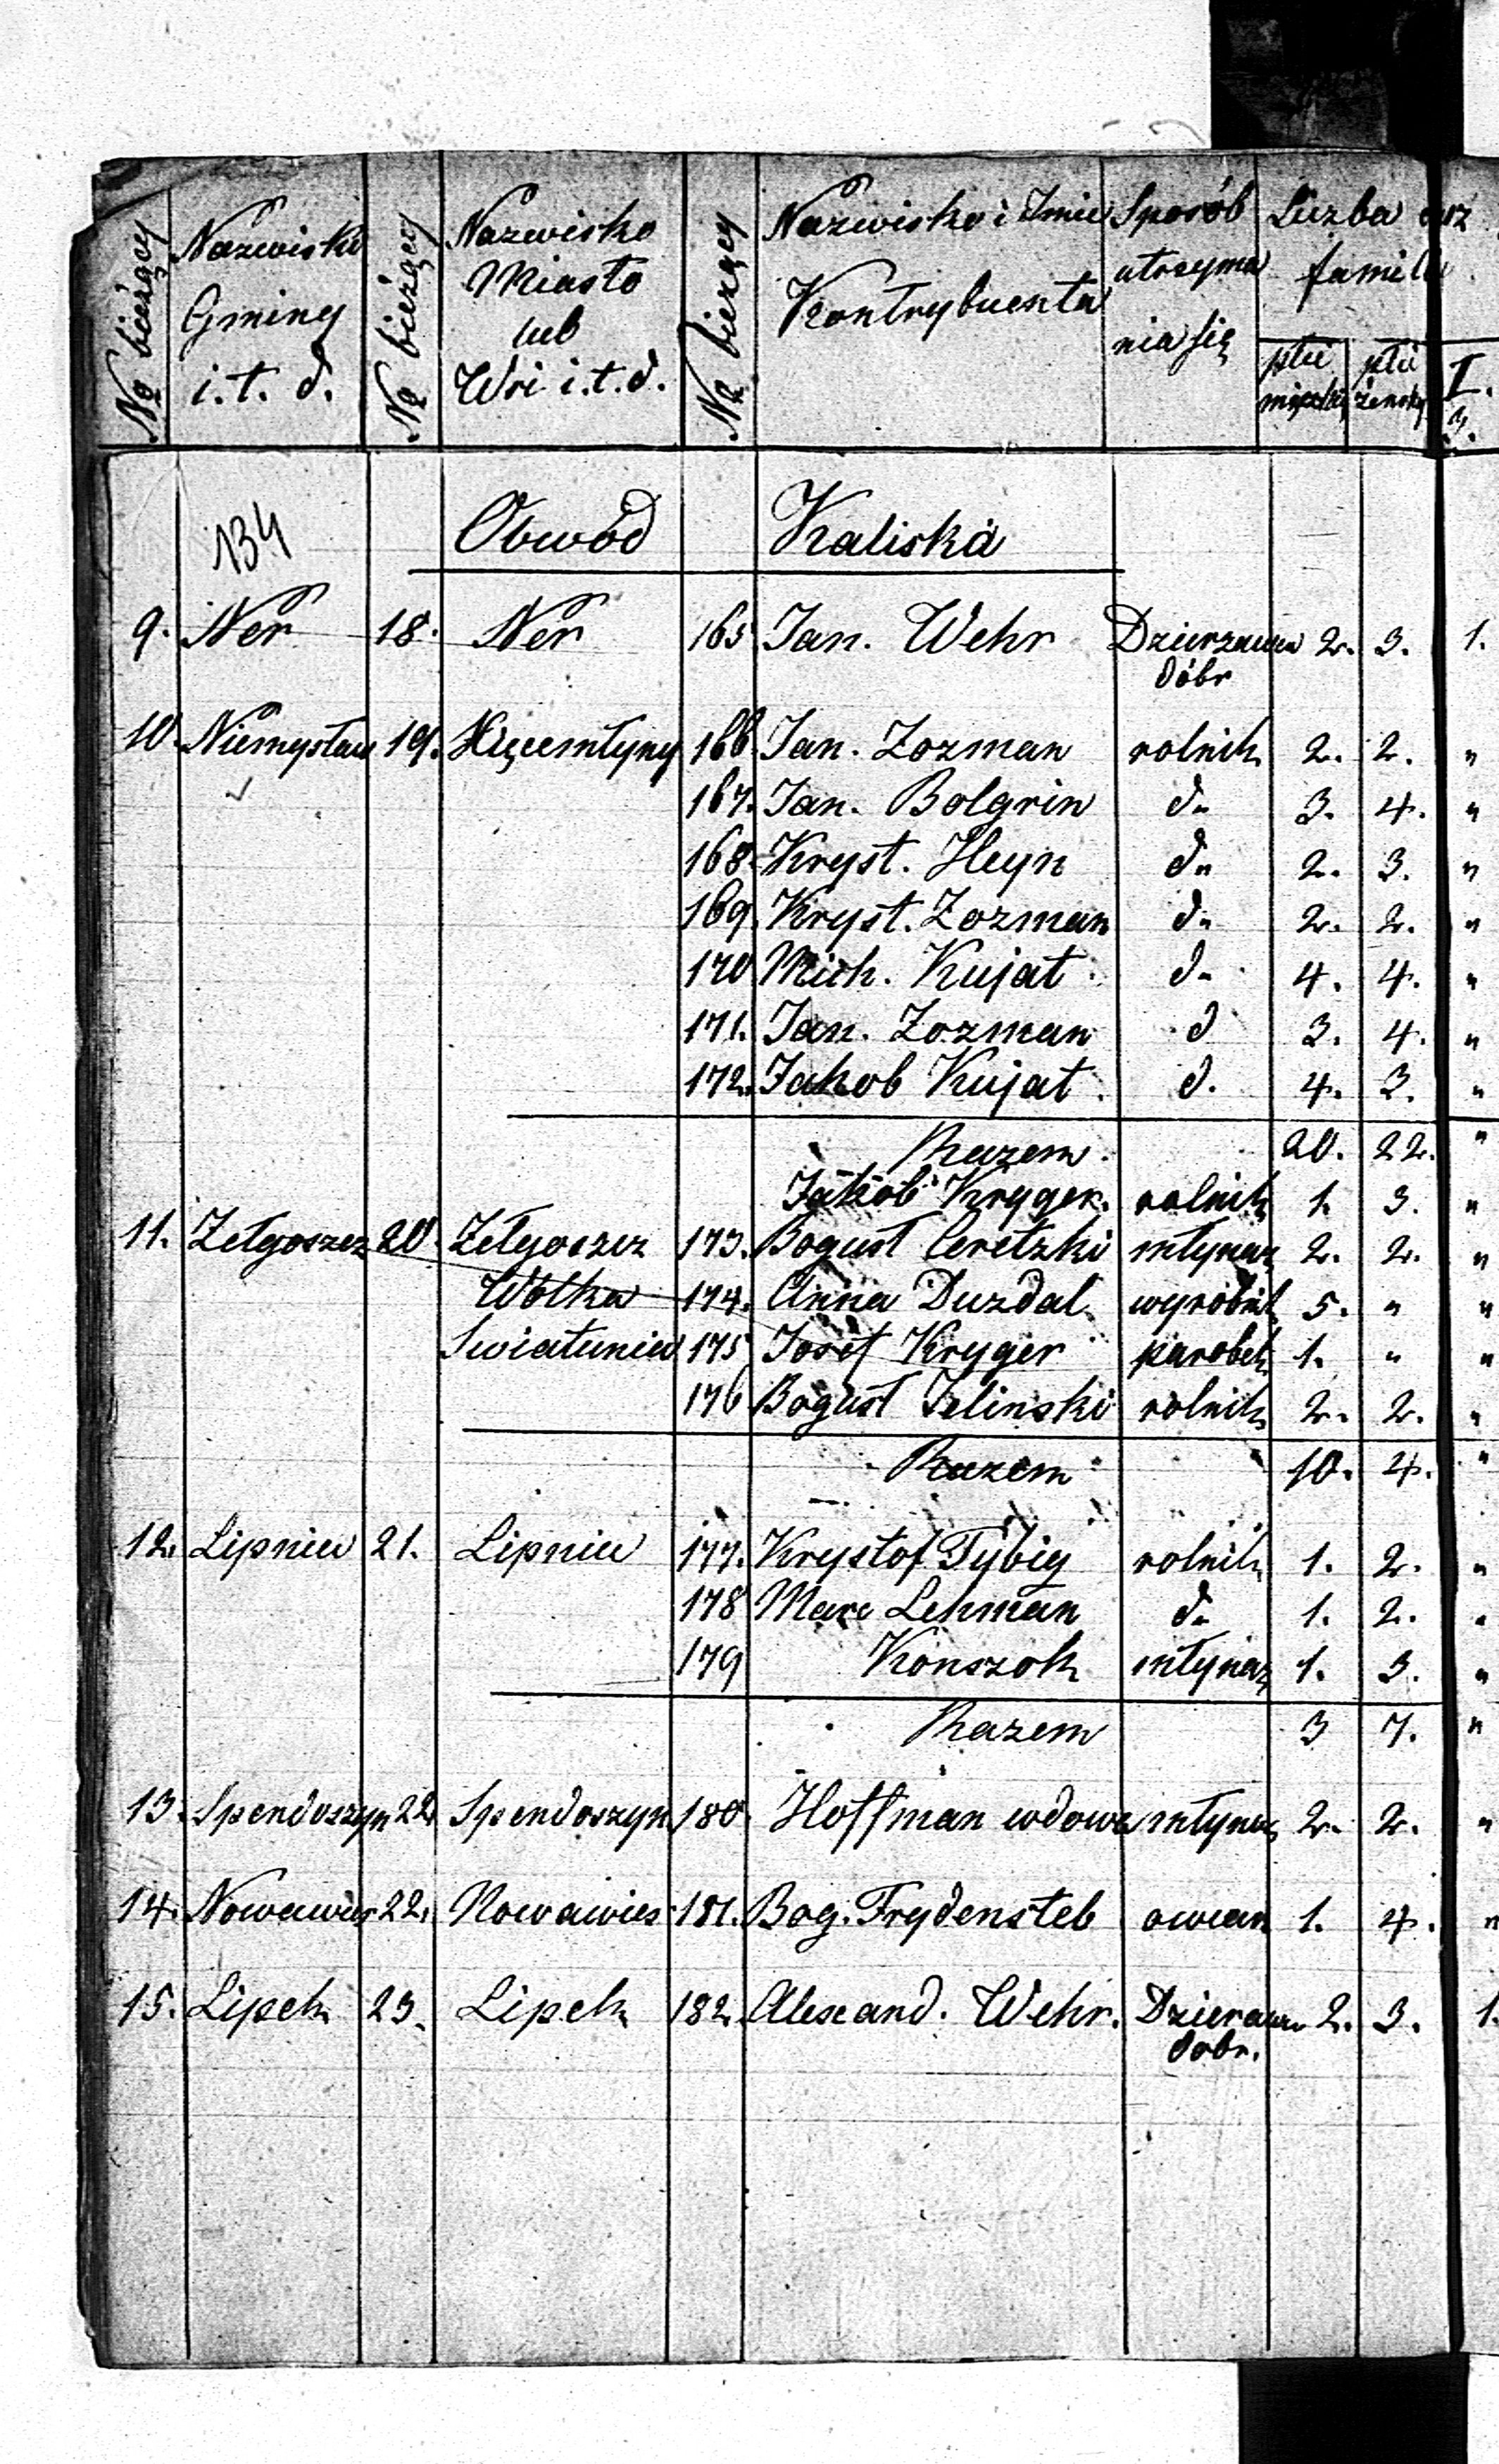 No bieżący Nazwisko Gminy i.t.d. No bieżący Nazwisko Miasta lub Wsi i.t.d. No bieżący Nazwisko i Imie Kontrybuenta Sposób utrzyma nia się Liczba familii płci męzki płci żensky I. 3.
134 Obwód Kaliska
9. Ner 18. Ner 165 Jan. Wehr Dzierzawca 2. 3. 1.
dóbr
10. Niemysłow 19. Xięzemłyny 166. Jan. Zozman rolnik 2. 2. "
167. Jan. Bolgrin d" 3. 4. "
168. Kryst. Heyn d" 2. 3. "
169. Kryst. Zozman d" 2. 2. "
170 Mich. Kujat d" 4. 4. "
171. Jan. Zozman d 3. 4. "
172. Jakob Kujat d. 4. 3. "
Razem 20. 22. "
Jakob Kryger. rolnik 1. 3. "
11. Zełgoszcz 20. Zełgoszcz 173. Bogust Ceretzki młynarz 2. 2. "
Wolka 174. Anna Duzdal wyrobnik 5. " "
Swiatunia 175 Josef Kryger parobek 1. " "
176 Bogust Jelinski rolnik 2. 2. "
Razem 10. 4. "
12. Lipnica 21. Lipnica 177. Krystof Tybig rolnik 1. 2. "
178 Marc Lehman d" 1. 2. "
179 Konszok młynarz 1. 3. "
Razem 3 7. "
13. Spendoszyn 22. Spendoszyn 180. Hoffman wdowa młynarz 2. 2. "
14. Nowawies 22. Nowawies 181. Bog. Frydensteb owczarz 1. 4. "
15. Lipek 23. Lipek 182. Alexand. Wehr. Dzierzawca 2. 3. 1.
dobr.